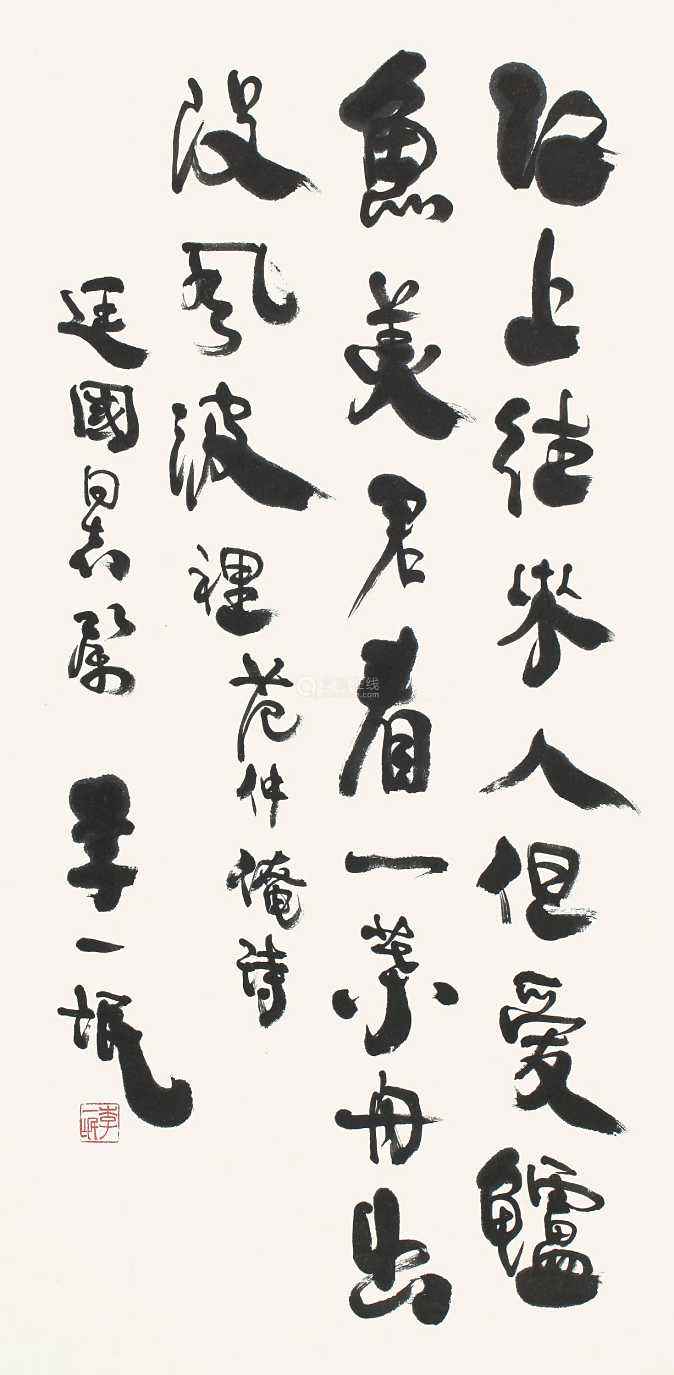 江上往来人但愛鱸
魚美君看一葉舟出
没風波裡 范仲俺詩
廷國同志属 李一氓
李一氓